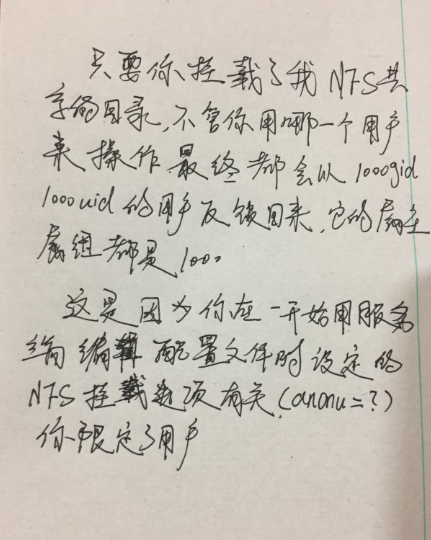 只要你挂载了我NFS共
享的目录,不管你用哪一个用户
来操作最终都会以1000gid
1000uid的用户反馈回来,它的属主
属组都是1000
这是因为你在一开始用服务
端编辑配置文件时设定的
NFS挂载选项有关(anonu=?)
你限定了用户